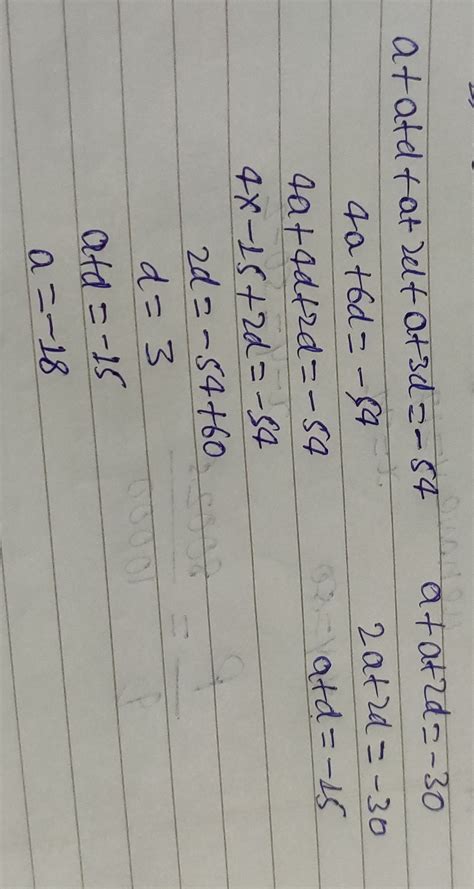 a+a+d+a+2d+a+3d=-54
4a+6d=-54
4a+4d+2d=-54
4x-15+2d=-54
2d=-54+60
d=3
a+d=-15
a=-18
a+a+2d=-30
2a+2d=-30
a+d=-15